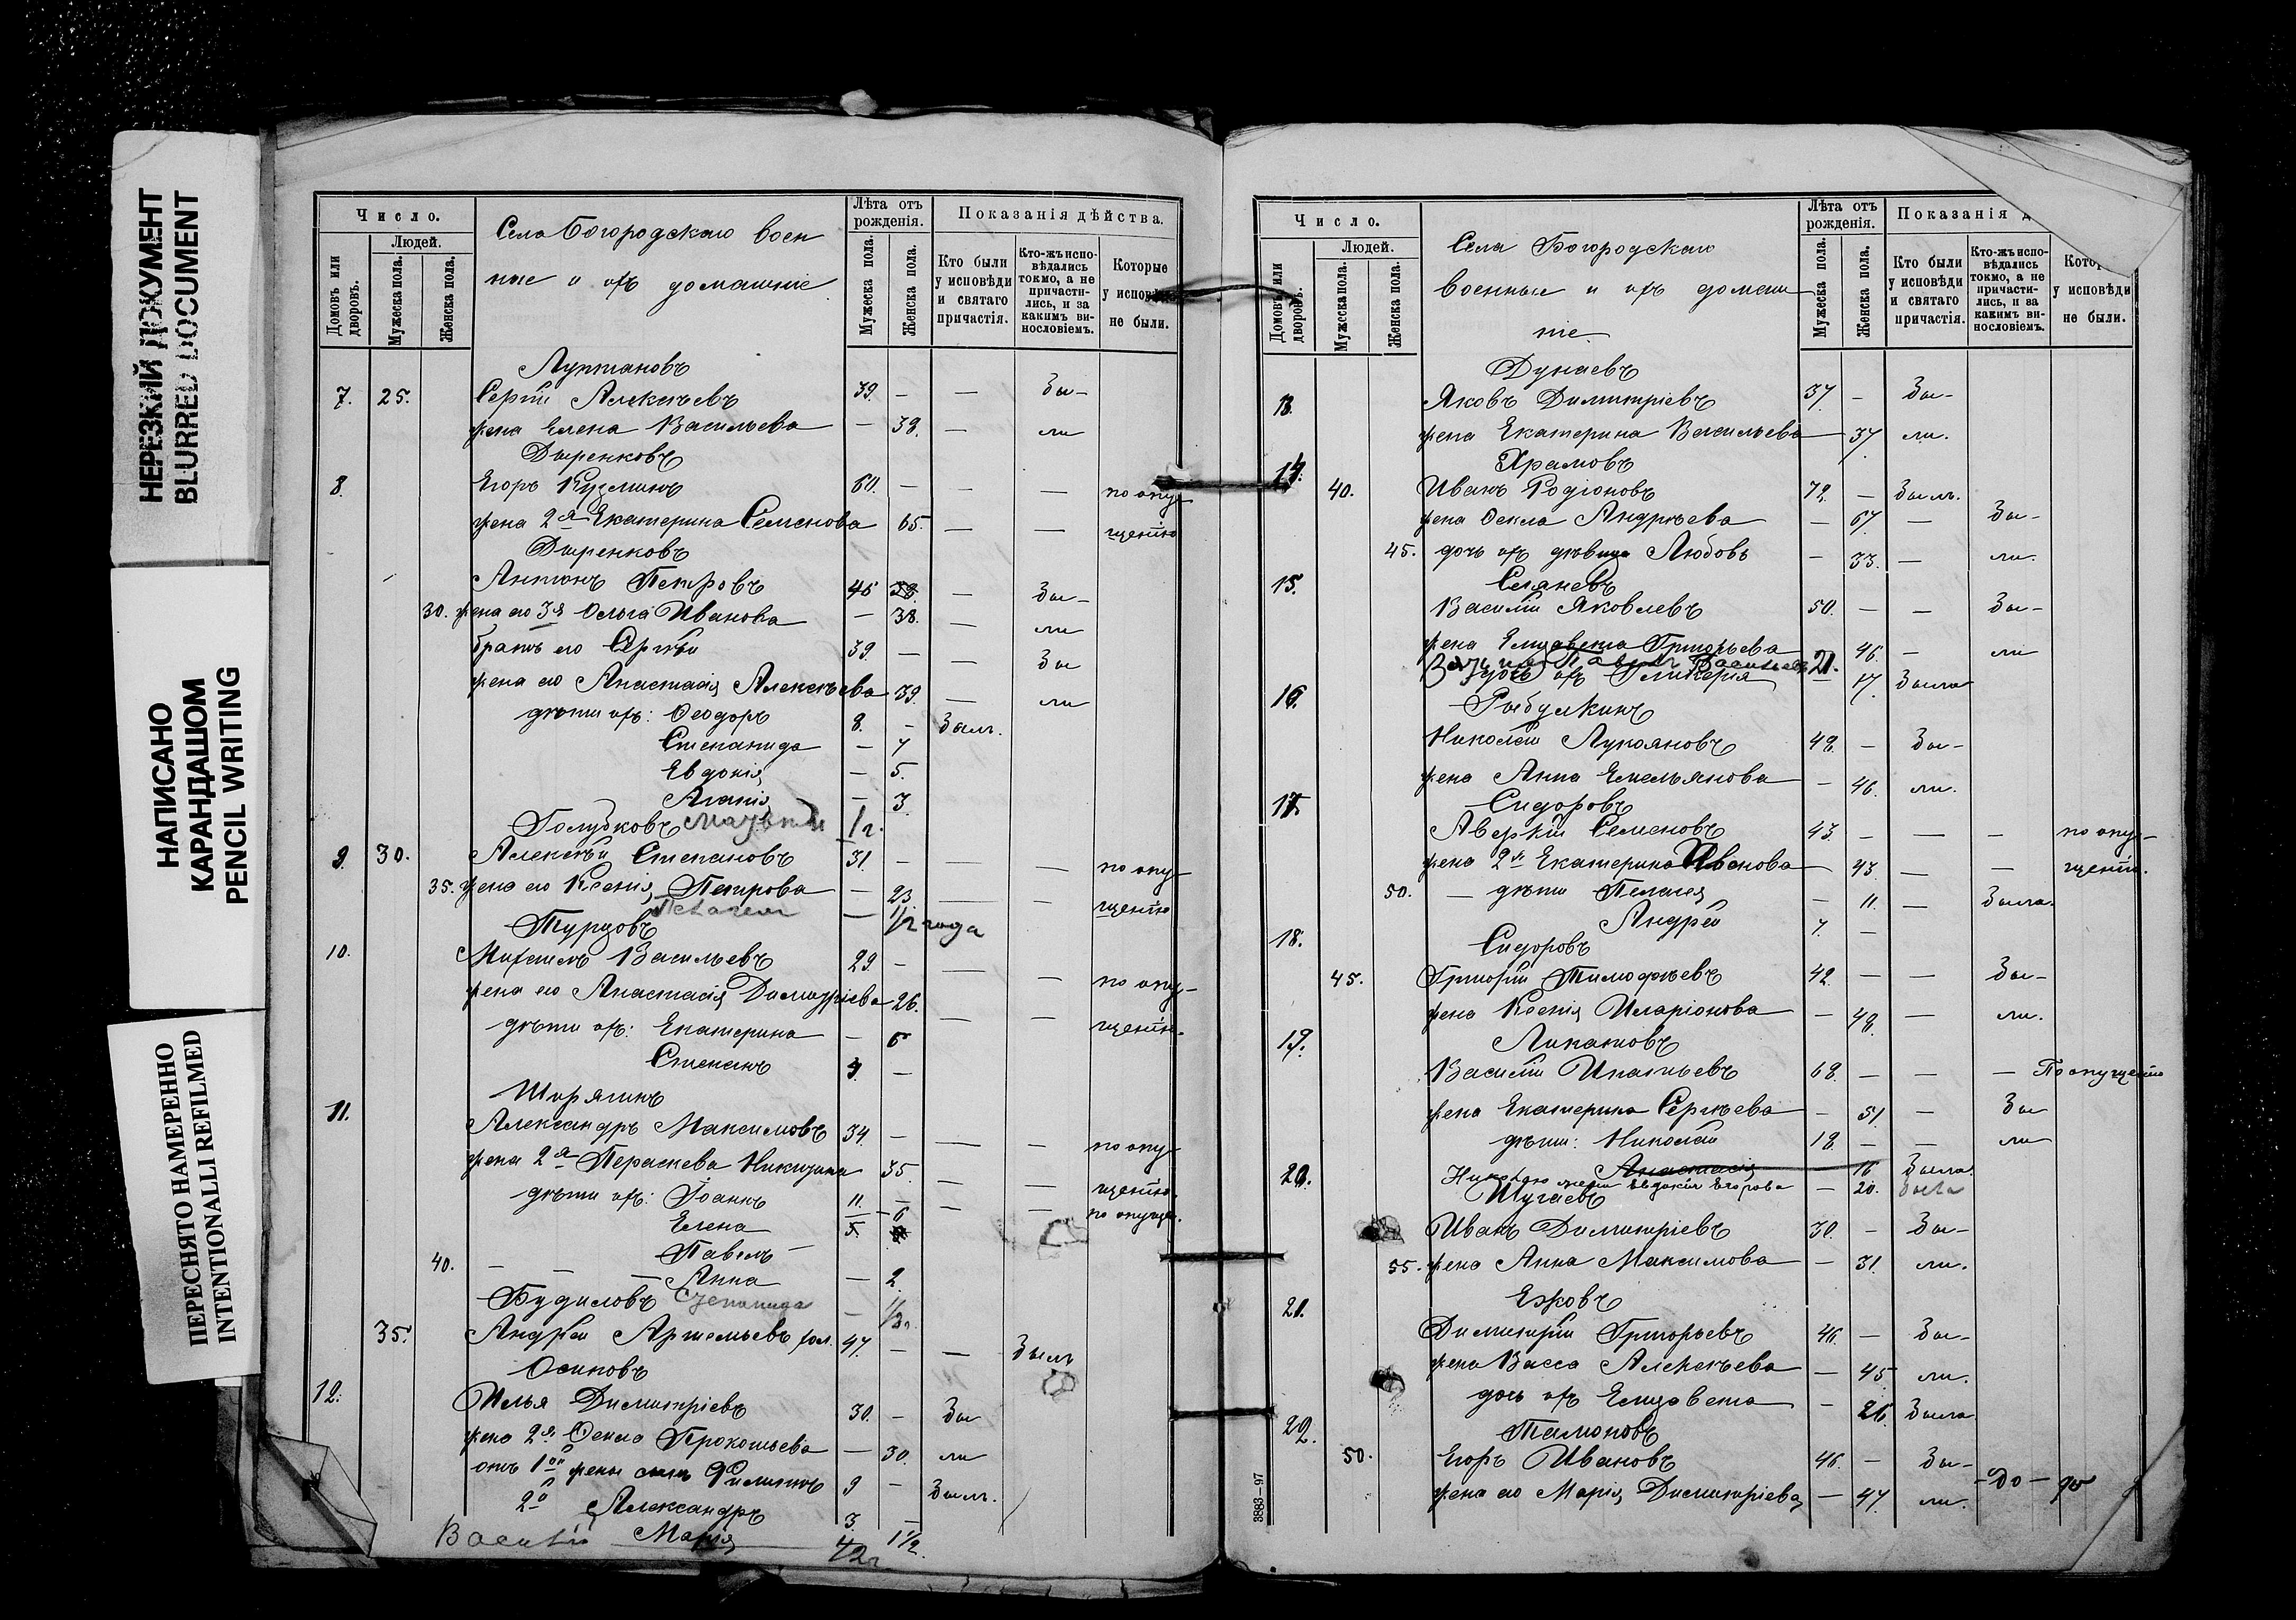 НЕРЕЗКИЙ ДОКУМЕНТ
BLURRED DOCUMENT
НАПИСАНО
КАРАНДАШОМ
PENCIL WRITING
ПЕРЕСНЯТО НАМЕРЕННО
INTENTIONALLI REFILMED
Число.
Людей.
Домовъ или дворовъ.
Мужеска пола.
Женска пола.
Села Богородскаго воен
ные и ихъ домашніе
Лѣта отъ рожденія.
Мужеска пола.
Женска пола.
Показанія дѣйства.
Кто были у исповѣди и святаго причастія.
Кто-жъ исповѣдались токмо, а не причастились, и за какимъ винословіемъ.
Которые у исповѣди не были.
7. 25. Сергій Алексѣевъ 39. — — Бы-
жена Елена Васильева — 38. — ли
Дыренковъ
8. Егоръ Кузминъ 60. — — — по опу-
жена 2я Екатерина Семенова 65. — — щенію
Дыренковъ
Антонъ Петровъ 45 — Бы-
30. жена его 3я Ольга Иванова — 38. — ли
братъ его Сергѣй 39. — — Бы
жена его Анастасія Алексѣева 39. — ли
дѣти ихъ: Ѳеодоръ 8. — Былъ.
Степанида — 7
Евдокія — 5.
Агапія — 3
Голубковъ
9. 30. Алексѣй Степановъ 31. — — — по опу-
35. жена его Ксенія Петрова — 23. — — щенію
1/2 года
Турцовъ
10. Михаилъ Васильевъ 29. — — — по опу-
жена его Анастасія Димитріева 26. — — щенію.
дѣти ихъ: Екатерина —
Степанъ —
11. Александръ Максимовъ 34. — — — по опу-
жена 2я Параскева Никитина 35. — — щенію.
дѣти ихъ: Іоаннъ 11. — — по опущ.
Елена
Павелъ —
40. — — — Анна — 2.
Будиловъ Степанида —
35. Андрей Артемьевъ хол. 47. — — Былъ
Осиповъ
12. Илья Димитріевъ 30. — Бы
жена 2я Ѳекла Прокопьева — 30. ли
отъ 1ой жены сынъ Филиппъ 9 — Былъ.
2й Александръ 3. —
Василій Марія 1 1/2.
Число.
Людей.
Домовъ или дворовъ.
Мужеска пола.
Женска пола.
Села Богородскаго
военные и ихъ домаш
ніе.
Лѣта отъ рожденія.
Мужеска пола.
Женска пола.
Показанія д
Кто были у исповѣди и святаго причастія.
Кто-жъ исповѣдались токмо, а не причастились, и за какимъ винословіемъ.
Котор
у исповѣди не были.
Дунаевъ
13. Яковъ Димитріевъ 37. — Бы-
жена Екатерина Васильева — 37. ли.
Храмовъ
14. 40. Иванъ Родіоновъ 72. — Былъ.
жена Ѳекла Андреева — 67. — Бы-
45. дочь ихъ дѣвица Любовь — 33. — ли.
15. Василій Яковлевъ 50. — — Бы-
жена Елизавета Григорьева 46. — ли
Павелъ Васильевъ 21.
дочь ихъ Гликерія — 17. Была
16. Рыбулкинъ
Николай Лукояновъ 48. — Бы-
жена Анна Емельянова — 46. ли.
17. Сидоровъ
Аверкій Семеновъ 43. — — — по опу-
жена 2я Екатерина Иванова — 43. — — щенію.
50. — дѣти Пелагея — 11. — Была.
Андрей 7. —
18. Сидоровъ
45. Григорій Тимоѳеевъ 42. — — Бы-
жена Ксенія Иларіонова — 48. — ли.
19. Василій Игнатьевъ 68. — — — По опущенію
жена Екатерина Сергѣева — 51. — Бы
дѣти: Николай 18. — — ли
Анастасія — 16 Была.
Николаю жена Евдокія Егорова — 20. Была
20. Шугаевъ
Иванъ Димитріевъ 30. — Бы-
55. жена Анна Максимова — 31. ли.
21. Ежовъ
Димитрій Григорьевъ 46. — Бы-
жена Васса Алексѣева — 45 ли.
дочь ихъ Елизавета — 26. Была
22. 50. Егоръ Ивановъ 46. — Бы-
жена его Марія Димитріева — 47. ли.
3883—97